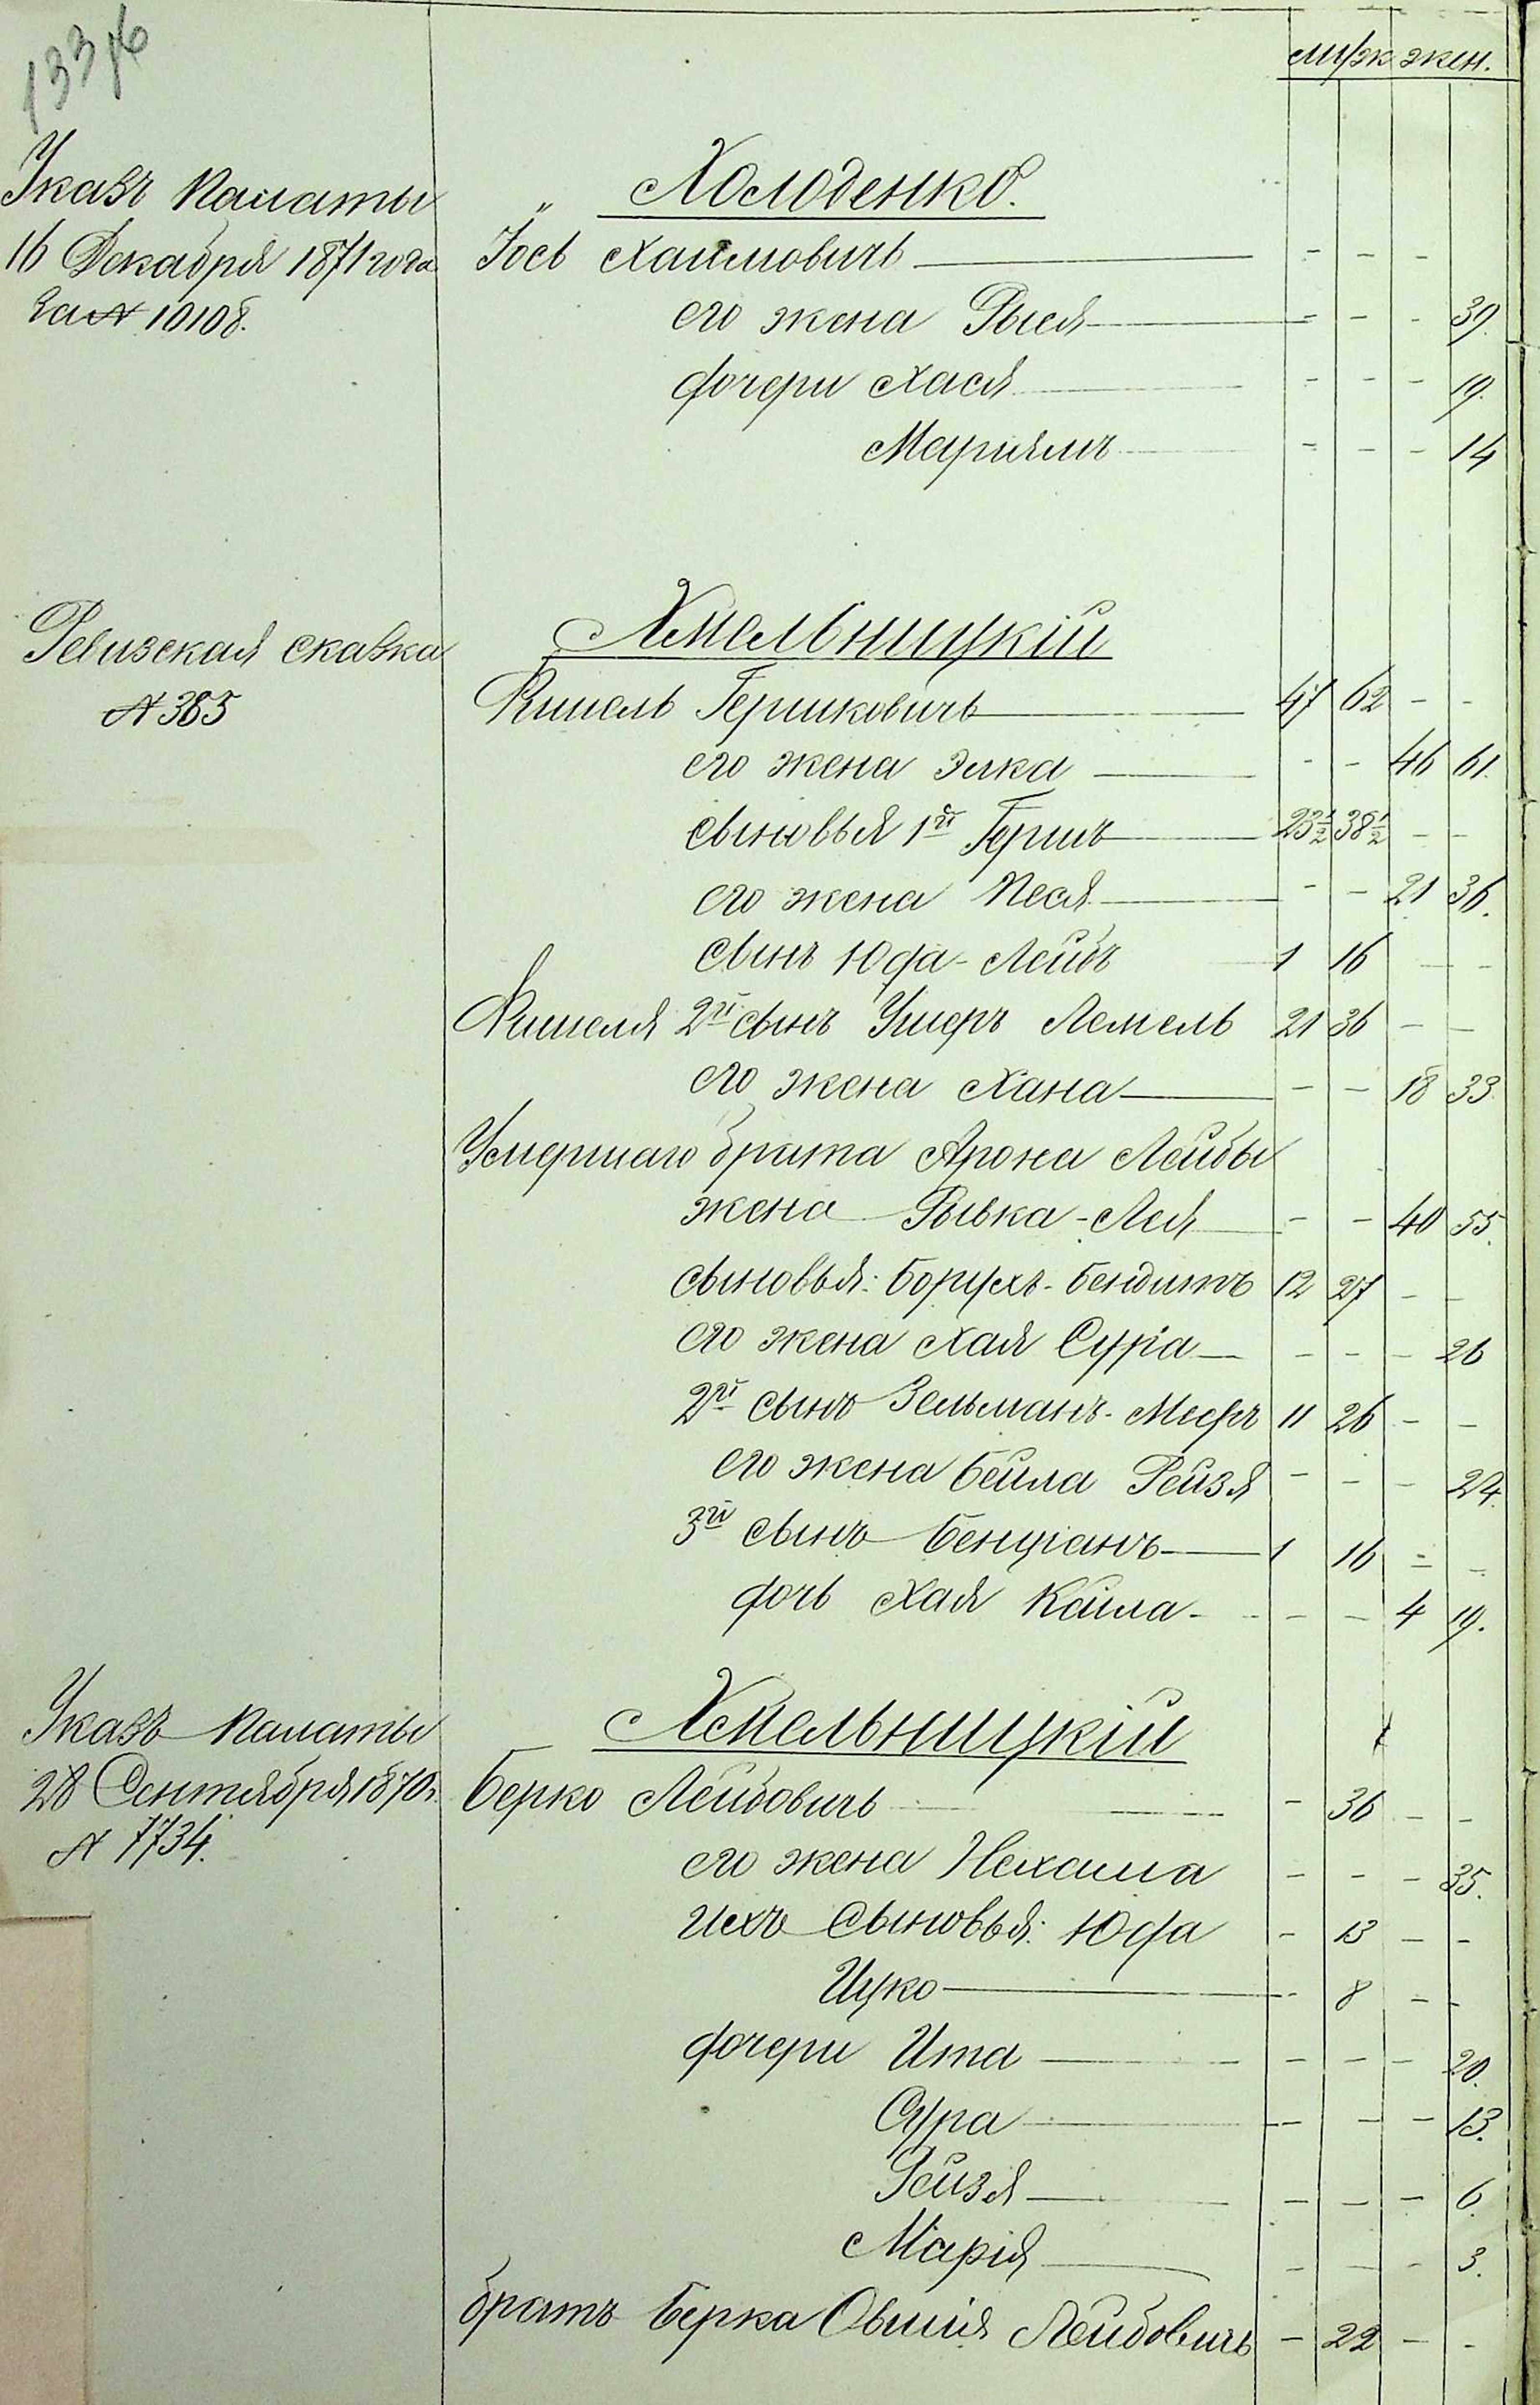 муж жен.
Указъ Палаты
16 Декабря 1871 года
за № 10108.
Холоденко.
Іось Хаимовичъ — - - -
его жена Рыся — - - - 39.
дочери Хася — - - - 19.
Маріямъ — - - - 14
Ревизская сказка
№ 385
Хмельницкій
Фишель Гершковичъ — 47 62 - -
его жена Элка — - - 46 61.
сыновья 1й Гершъ — 23½ 38½ - -
его жена Песя — - - 21 36.
сынъ Юда-Лейбъ 1 16 - -
Фишеля 2й сынъ Ушеръ Лемель 21 36 - -
его жена Хана — - - 18 33.
Умершаго брата Арона Лейбы
жена Рывка-Лея — - - 40 55.
сыновья: Борухъ-Бендитъ 12 27 - -
его жена Хая Сура — - - - 26
2й сынъ Зельманъ-Мееръ 11 26 - -
его жена Бейла Рейзя - - - 24.
3й сынъ Бенціанъ — 1 16 - -
дочь Хая Кайла - - - 4 19.
Указъ Палаты
28 Сентября 1870 г.
№ 7734.
Хмельницкій
Берко Лейбовичъ — - 36 - -
его жена Нехама - - - 35.
ихъ сыновья: Юда - 13 - -
Ицко — - 8 - -
дочери Ита — - - - 20.
Сура — - - - 13.
Рейзя — - - - 6.
Марія — - - - 3.
братъ Берка Овшія Лейбовичъ - 22 - -